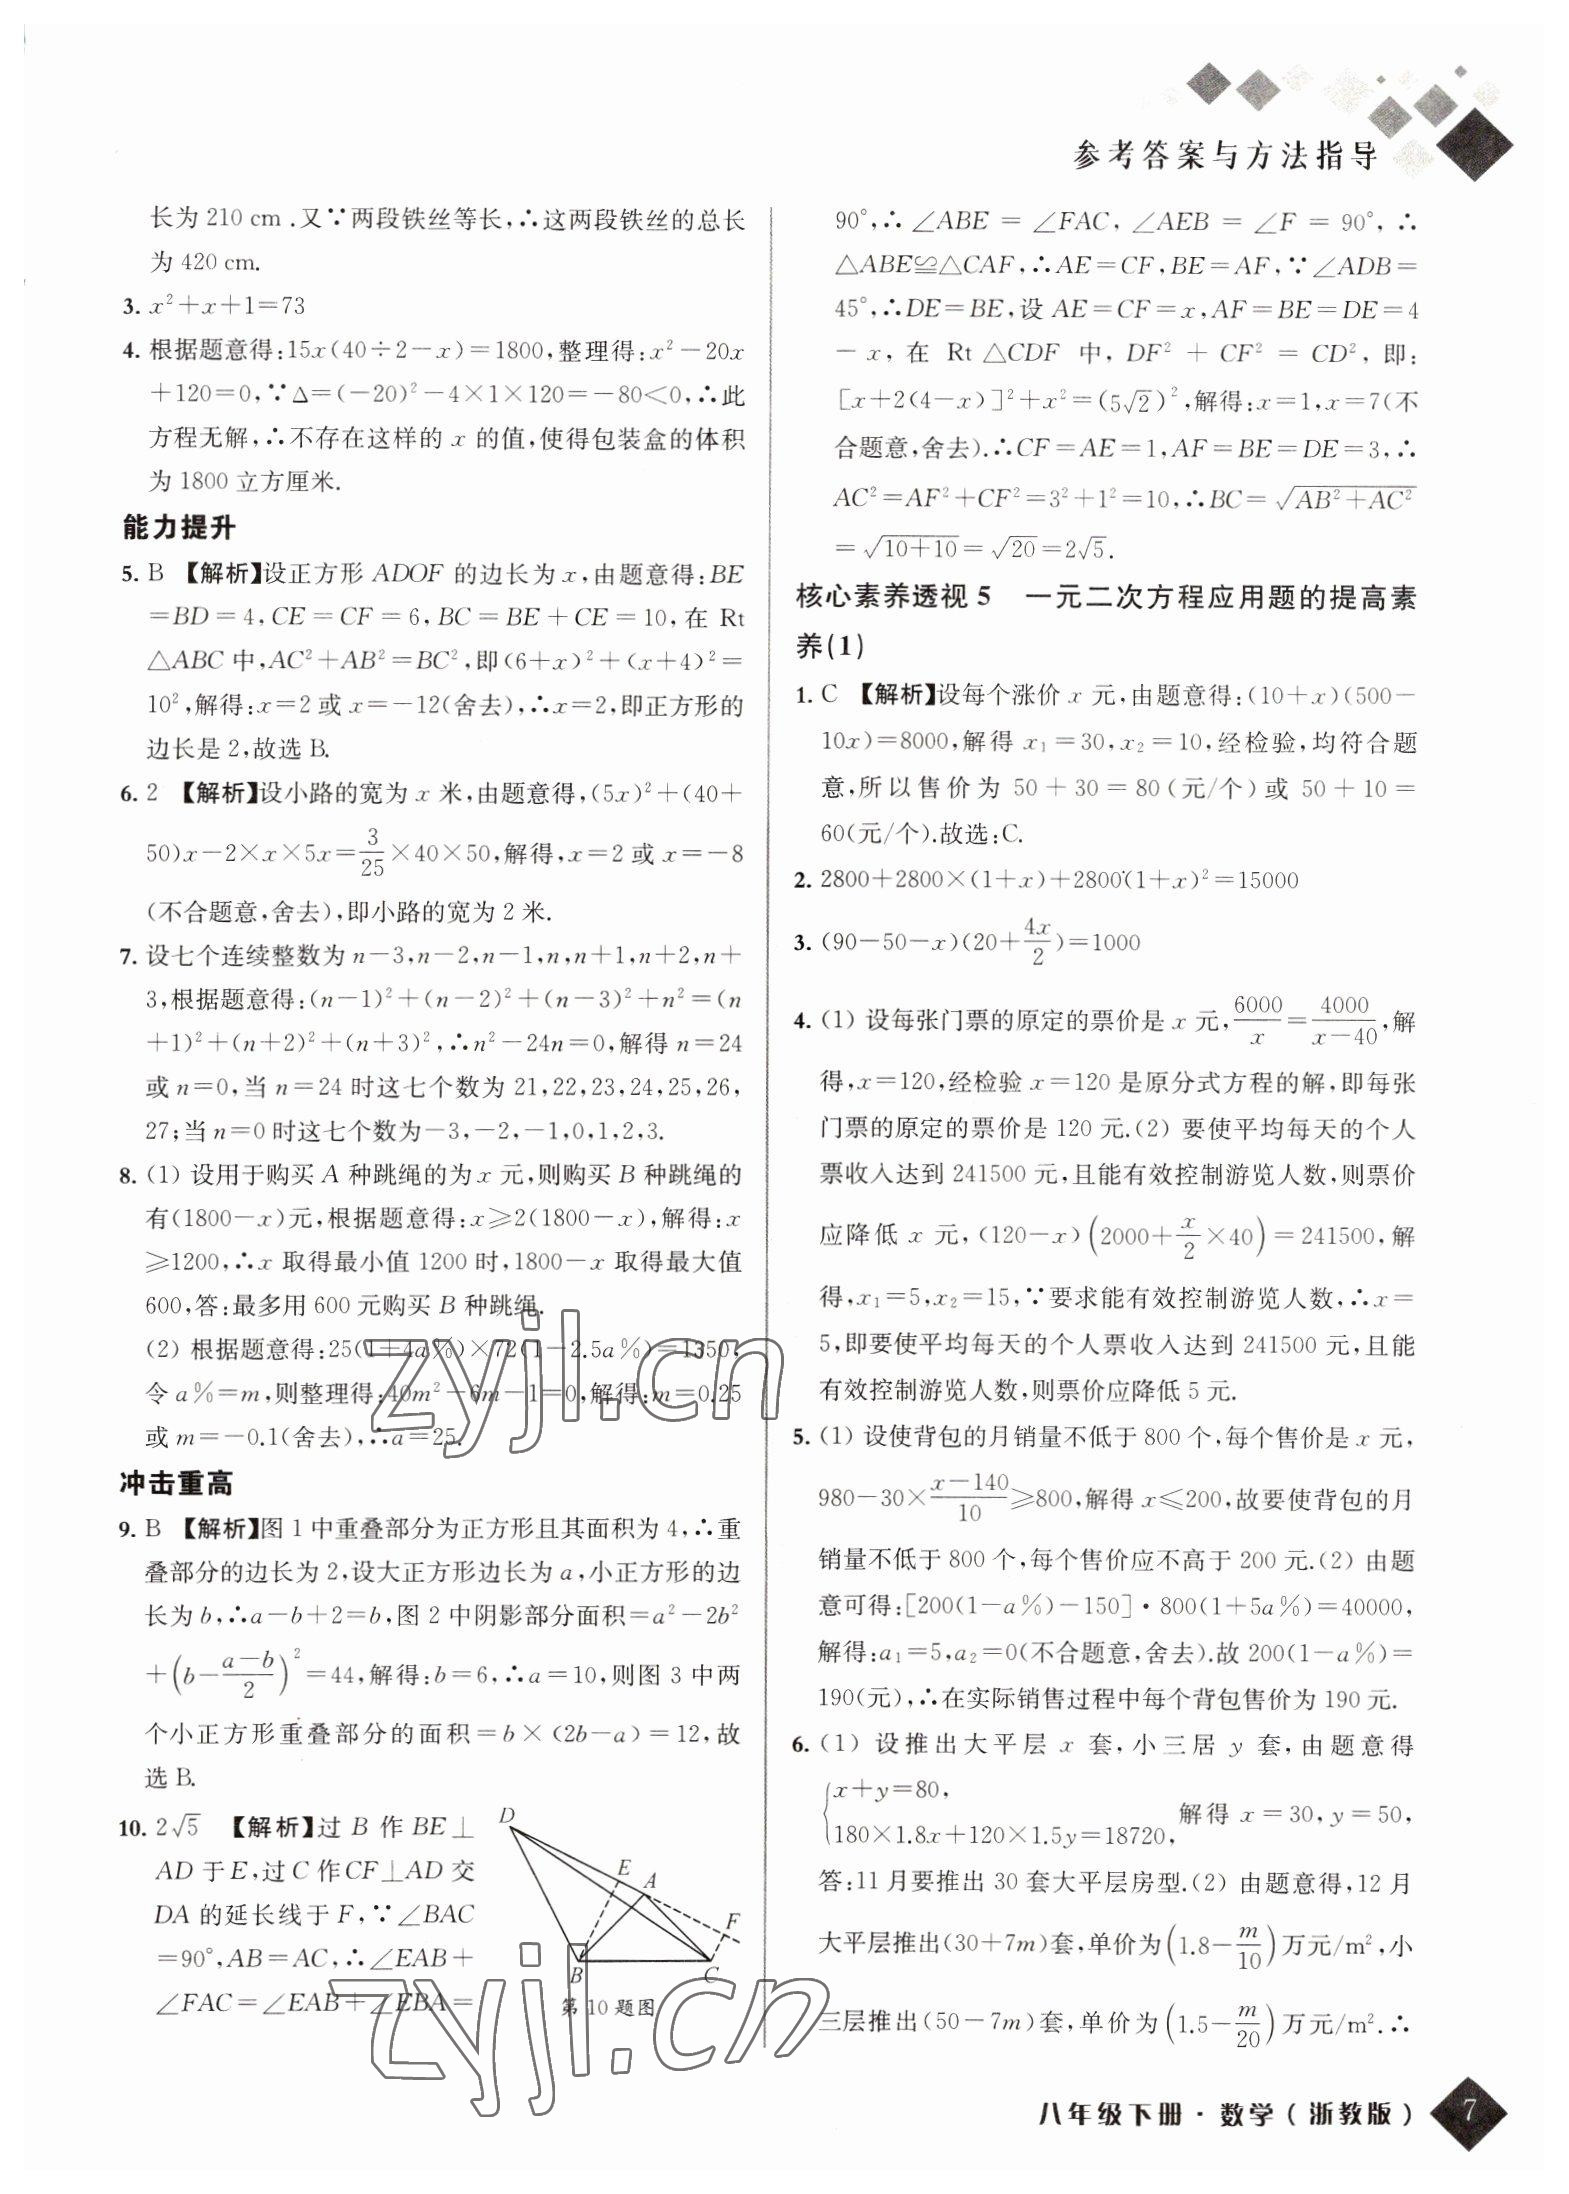 参考答案与方法指导
长为 210 cm.又∵两段铁丝等长,∴这两段铁丝的总长
为 420 cm.
3. x²+x+1=73
4. 根据题意得:15x(40÷2-x)=1800,整理得:x²-20x
+120=0,∵Δ=(-20)²-4×1×120=-80<0,∴此
方程无解,∴不存在这样的 x 的值,使得包装盒的体积
为 1800 立方厘米.
能力提升
5. B 【解析】设正方形 ADOF 的边长为 x,由题意得:BE
=BD=4,CE=CF=6,BC=BE+CE=10,在 Rt
△ABC 中,AC²+AB²=BC²,即(6+x)²+(x+4)²=
10²,解得:x=2 或 x=-12(舍去),∴x=2,即正方形的
边长是 2,故选 B.
6. 2 【解析】设小路的宽为 x 米,由题意得,(5x)²+(40+
50)x-2×x×5x=3/25×40×50,解得,x=2 或 x=-8
(不合题意,舍去),即小路的宽为 2 米.
7. 设七个连续整数为 n-3,n-2,n-1,n,n+1,n+2,n+
3,根据题意得:(n-1)²+(n-2)²+(n-3)²+n²=(n
+1)²+(n+2)²+(n+3)²,∴n²-24n=0,解得 n=24
或 n=0,当 n=24 时这七个数为 21,22,23,24,25,26,
27;当 n=0 时这七个数为-3,-2,-1,0,1,2,3.
8. (1) 设用于购买 A 种跳绳的为 x 元,则购买 B 种跳绳的
有(1800-x)元,根据题意得:x≥2(1800-x),解得:x
≥1200,∴x 取得最小值 1200 时,1800-x 取得最大值
600,答:最多用 600 元购买 B 种跳绳.
(2) 根据题意得:25(1+4a%)×72(1-2.5a%)=1350,
令 a%=m,则整理得:40m²-6m-1=0,解得:m=0.25
或 m=-0.1(舍去),∴a=25.
冲击重高
9. B 【解析】图 1 中重叠部分为正方形且其面积为 4,∴重
叠部分的边长为 2,设大正方形边长为 a,小正方形的边
长为 b,∴a-b+2=b,图 2 中阴影部分面积=a²-2b²
+(b-(a-b)/2)²=44,解得:b=6,∴a=10,则图 3 中两
个小正方形重叠部分的面积=b×(2b-a)=12,故
选 B.
10. 2√5 【解析】过 B 作 BE⊥
AD 于 E,过 C 作 CF⊥AD 交
DA 的延长线于 F,∵∠BAC
=90°,AB=AC,∴∠EAB+
∠FAC=∠EAB+∠EBA=
D
E
A
F
B
C
第 10 题图
90°,∴∠ABE=∠FAC,∠AEB=∠F=90°,∴
△ABE≌△CAF,∴AE=CF,BE=AF,∵∠ADB=
45°,∴DE=BE,设 AE=CF=x,AF=BE=DE=4
-x,在 Rt△CDF 中,DF²+CF²=CD²,即:
[x+2(4-x)]²+x²=(5√2)²,解得:x=1,x=7(不
合题意,舍去).∴CF=AE=1,AF=BE=DE=3,∴
AC²=AF²+CF²=3²+1²=10,∴BC=√(AB²+AC²)
=√(10+10)=√20=2√5.
核心素养透视 5 一元二次方程应用题的提高素
养(1)
1. C 【解析】设每个涨价 x 元,由题意得:(10+x)(500-
10x)=8000,解得 x₁=30,x₂=10,经检验,均符合题
意,所以售价为 50+30=80(元/个)或 50+10=
60(元/个).故选:C.
2. 2800+2800×(1+x)+2800(1+x)²=15000
3. (90-50-x)(20+4x/2)=1000
4. (1) 设每张门票的原定的票价是 x 元,6000/x=4000/(x-40),解
得,x=120,经检验 x=120 是原分式方程的解,即每张
门票的原定的票价是 120 元.(2) 要使平均每天的个人
票收入达到 241500 元,且能有效控制游览人数,则票价
应降低 x 元,(120-x)(2000+x/2×40)=241500,解
得,x₁=5,x₂=15,∵要求能有效控制游览人数,∴x=
5,即要使平均每天的个人票收入达到 241500 元,且能
有效控制游览人数,则票价应降低 5 元.
5. (1) 设使背包的月销量不低于 800 个,每个售价是 x 元,
980-30×(x-140)/10≥800,解得 x≤200,故要使背包的月
销量不低于 800 个,每个售价应不高于 200 元.(2) 由题
意可得:[200(1-a%)-150]·800(1+5a%)=40000,
解得:a₁=5,a₂=0(不合题意,舍去).故 200(1-a%)=
190(元),∴在实际销售过程中每个背包售价为 190 元.
6. (1) 设推出大平层 x 套,小三居 y 套,由题意得
{x+y=80,
180×1.8x+120×1.5y=18720, 解得 x=30,y=50,
答:11 月要推出 30 套大平层房型.(2) 由题意得,12 月
大平层推出(30+7m)套,单价为(1.8-m/10)万元/m²,小
三层推出(50-7m)套,单价为(1.5-m/20)万元/m².∴
zyjl.cn
zyjl.cn
八年级下册·数学(浙教版)
7